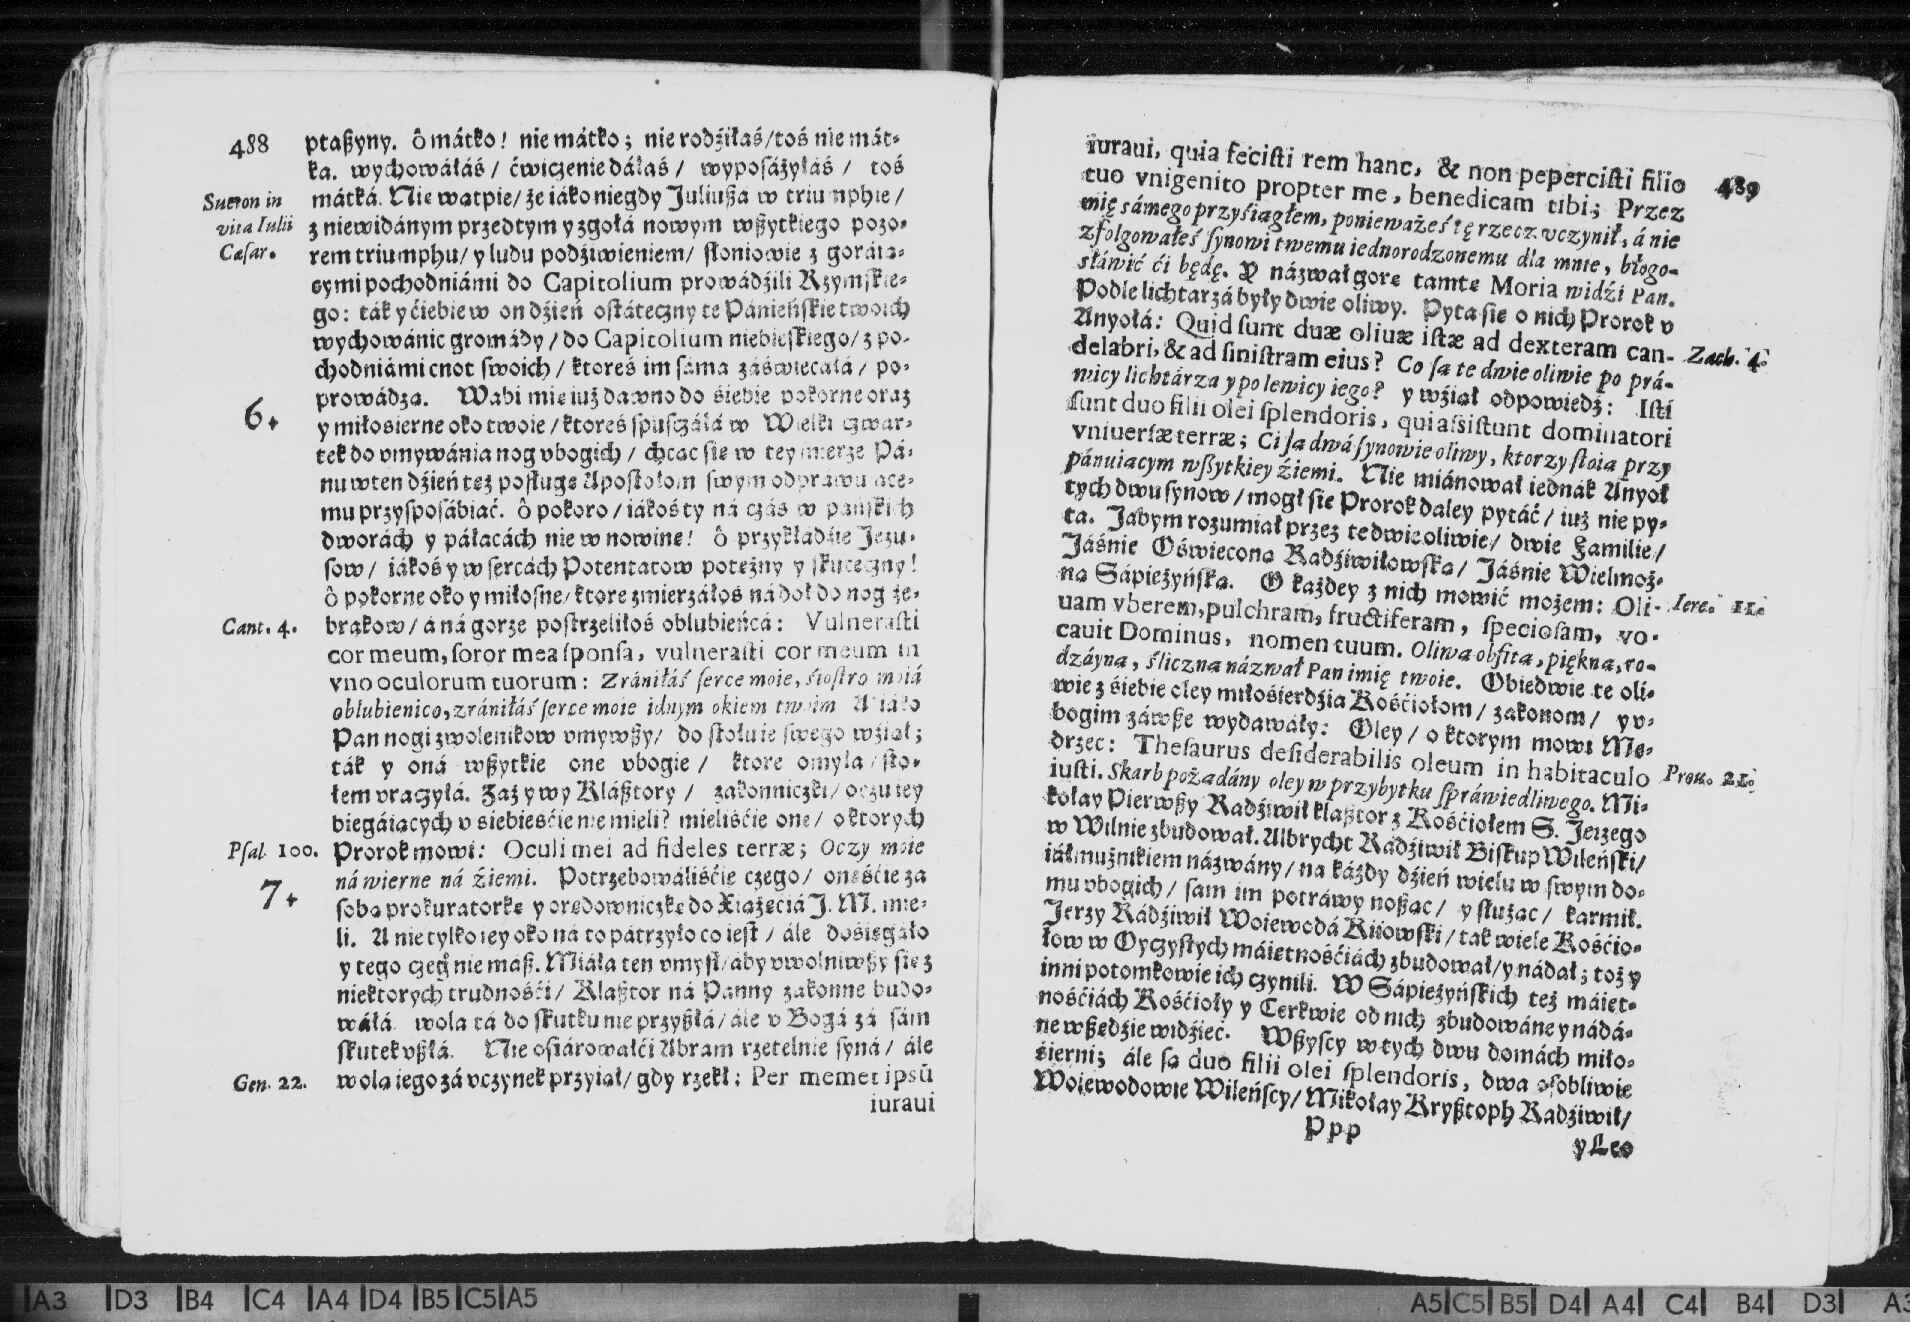 488
ptaßyny. ô mátko! nie mátko; nie rodźiłaś/toś nie mát-
ka. wychowáłáś / ćwiczenie dáłaś / wyposáżyłáś / toś
mátká. Nie watpie/ że iáko niegdy Juliußa w triumphie /
z niewidánym przedtym y zgołá nowym wßytkiego pozo-
rem triumphu/ y ludu podźiwieniem/ słoniowie z goráia-
cymi pochodniámi do Capitolium prowádźili Rzymskie-
go: ták y ćiebie w on dźień ostáteczny te Pánieńskie twoich
wychowánic gromády / do Capitolium niebieskiego/ z po-
chodniámi cnot swoich / ktoreś im sámá záświecáłá / po-
prowádza. Wabi mie iuż dawno do śiebie pokorne oraz
y miłosierne oko twoie / ktoreś spusczáłá w Wielki czwar-
tek do vmywánia nog vbogich / chcac sie w tey mierze Pá-
nu w ten dźień też posługe Apostołom swym odpráwuiące-
mu przysposábiać. ô pokoro / iákoś ty ná czás w páńskich
dworách y páłacách nie w nowine! ô przykłádźie Jezu-
sow/ iákoś y w sercách Potentatow potężny y skuteczny!
ô pokorne oko y miłosne/ ktore zmierzáłoś ná doł do nog że-
brakow/ á ná gorze postrzeliłoś oblubieńcá: Vulnerasti
cor meum, soror mea sponsa, vulnerasti cor meum in
vno oculorum tuorum: Zrániłáś serce moie, śiostro moiá
oblubienico, zrániłáś serce moie idnym okiem twoim A iáko
Pan nogi zwolenikow vmywßy/ do stołu ie swego wźiał;
ták y oná wßytkie one vbogie / ktore omyła / sto-
łem vraczyłá. Zaż y wy Kláßtory / zakonniczki / oczu iey
biegáiących v siebieśćie nie mieli? mieliśćie one/ o ktorych
Prorok mowi: Oculi mei ad fideles terræ; Oczy moie
ná wierne ná źiemi. Potrzebowáliśćie czego/ oneśćie za
soba prokuratorke y oredowniczke do Xiążęciá J. M. mie-
li. A nie tylko iey oko ná to pátrzyło co iest / ále dosięgáło
y tego czeg° nie máß. Miáła ten vmysł/ aby vwolniwßy sie z
niektorych trudnośći/ Klaßtor ná Panny zakonne budo-
wáłá. wola tá do skutku nie przyßłá/ ále v Bogá zá sám
skutek vßłá. Nie ofiárowałći Abram rzetelnie syná/ ále
wola iego zá vczynek przyiał/ gdy rzekł: Per memet ipsū
iuraui
Sueton in
vita Iulii
Cæsar.
6.
Cant. 4.
Psal. 100.
7.
Gen. 22.
489
iuraui, quia fecisti rem hanc, & non pepercisti filio
tuo vnigenito propter me, benedicam tibi; Przez
mię sámego przyśiągłem, ponieważeś tę rzecz vczynił, á nie
zfolgowałeś synowi twemu iednorodzonemu dla mnie, błogo-
słáwić ći będę. Y názwał gore tamte Moria widźi Pan.
Podle lichtarzá były dwie oliwy. Pyta sie o nich Prorok v
Anyołá: Quid sunt duæ oliuæ istæ ad dexteram can-
delabri, & ad sinistram eius? Co sa te dwie oliwie po prá-
wicy lichtárza y po lewicy iego? y wźiał odpowiedź: Isti
sunt duo filii olei splendoris, qui assistunt dominatori
vniuersæ terræ; Ci sa dwá synowie oliwy, ktorzy stoia przy
pánuiacym wßytkiey źiemi. Nie miánował iednák Anyoł
tych dwu synow / mogł sie Prorok daley pytáć / iuż nie py-
ta. Jabym rozumiał przez te dwie oliwie/ dwie Familie/
Jáśnie Oświecona Radźiwiłowska/ Jáśnie Wielmoż-
na Sápieżyńska. O każdey z nich mowić możem: Oli-
uam vberem, pulchram, fructiferam, speciosam, vo-
cauit Dominus, nomen tuum. Oliwa obfita, piękna, ro-
dzáyna, śliczna názwał Pan imię twoie. Obiedwie te oli-
wie z śiebie oley miłośierdźia Kośćiołom / zakonom / y v-
bogim záwße wydawáły: Oley / o ktorym mowi Me-
drzec: Thesaurus desiderabilis oleum in habitaculo
iusti. Skarb pożadány oley w przybytku spráwiedliwego. Mi-
kołay Pierwßy Radźiwił klaßtor z Kośćiołem S. Jerzego
w Wilnie zbudował. Albrycht Radźiwił Biskup Wileński/
iáłmużnikiem názwány / na káżdy dźień wielu w swym do-
mu vbogich / sam im potráwy noßac / y służac / karmił.
Jerzy Rádźiwił Woiewodá Kiiowski / tak wiele Kośćio-
łow w Oyczystych máietnośćiách zbudował/ y nádał; toż y
inni potomkowie ich czynili. W Sápieżyńskich też máiet-
nośćiách Kośćioły y Cerkwie od nich zbudowáne y nádá-
ne wßedźie widźieć. Wßyscy w tych dwu domách miło-
śierni; ále sa duo filii olei splendoris, dwa osobliwie
Woiewodowie Wileńscy/ Mikołay Kryßtoph Radźiwił/
Ppp
y Leo
Zach. 4.
Iere. 11.
Prou. 21.
A3 D3 B4 C4 A4 D4 B5 C5 A5
A5 C5 B5 D4 A4 C4 B4 D3 A3